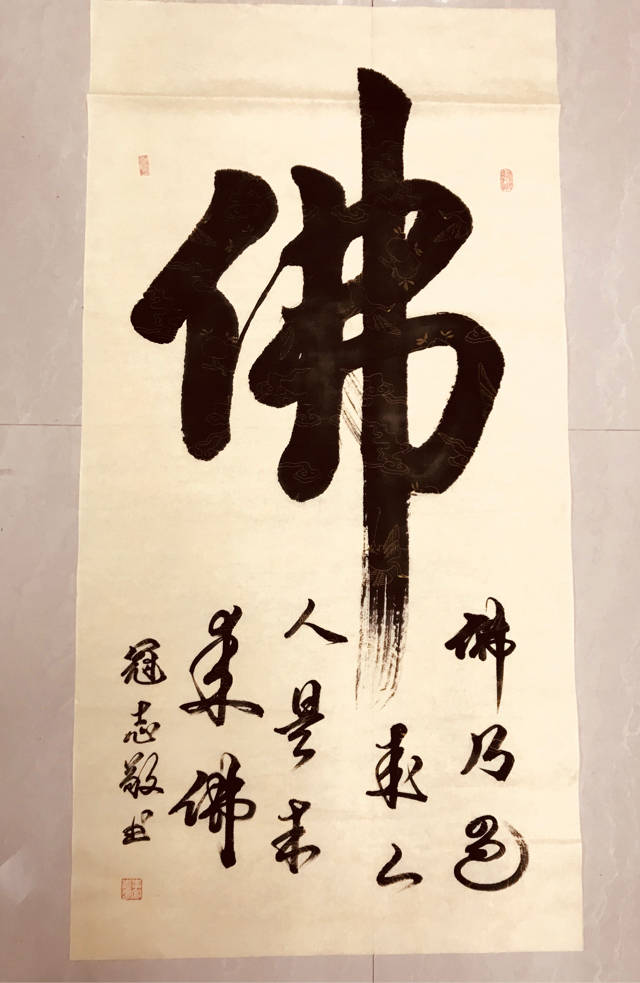 佛
佛乃過
来人
人是未
来佛
冠志敬书